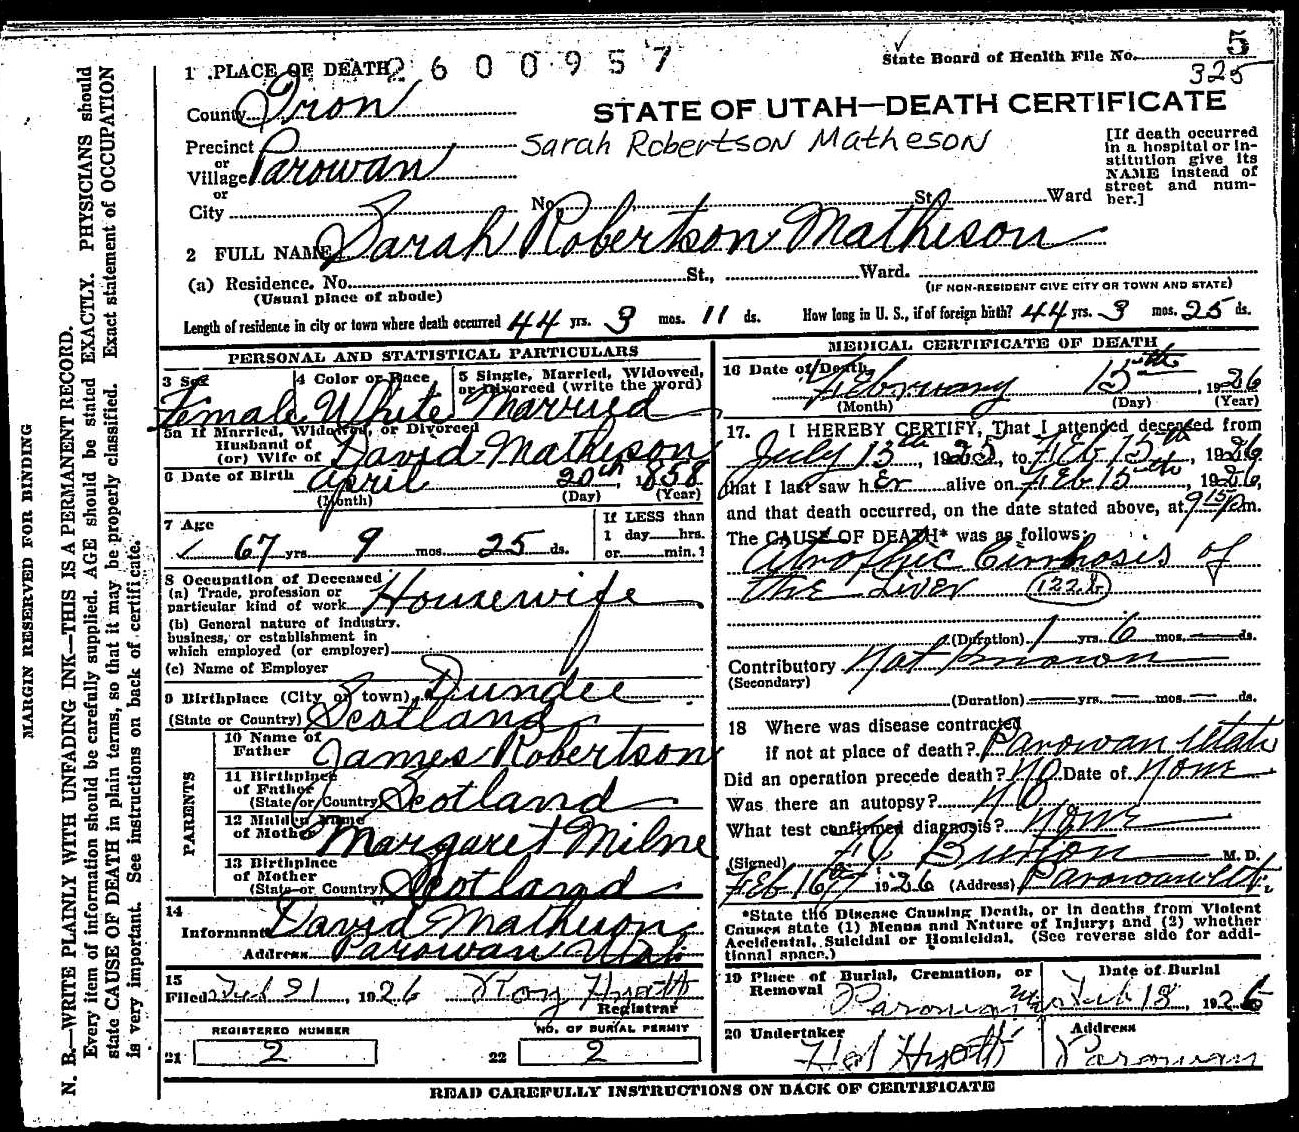 State Board of Health File No. 5
325
1 PLACE OF DEATH 2600957
County Iron
STATE OF UTAH—DEATH CERTIFICATE
Precinct
or
Village Parowan
Sarah Robertson Matheson
[If death occurred in a hospital or institution give its NAME instead of street and number.]
or
City No. St. Ward
2 FULL NAME Sarah Robertson Matheson
(a) Residence. No. St., Ward.
(Usual place of abode) (IF NON-RESIDENT GIVE CITY OR TOWN AND STATE)
Length of residence in city or town where death occurred 44 yrs. 3 mos. 11 ds. How long in U. S., if of foreign birth? 44 yrs. 3 mos. 25 ds.
PERSONAL AND STATISTICAL PARTICULARS
3 Sex 4 Color or Race 5 Single, Married, Widowed, or Divorced (write the word)
Female White Married
5a If Married, Widowed, or Divorced
Husband of
(or) Wife of David Matheson
6 Date of Birth April 20th 1858
(Month) (Day) (Year)
7 Age
67 yrs 9 mos. 25 ds.
If LESS than
1 day hrs.
or min.?
8 Occupation of Deceased
(a) Trade, profession or
particular kind of work Housewife
(b) General nature of industry,
business, or establishment in
which employed (or employer)
(c) Name of Employer
9 Birthplace (City or town) Dundee
(State or Country) Scotland
PARENTS
10 Name of
Father James Robertson
11 Birthplace
of Father
(State or Country) Scotland
12 Maiden Name
of Mother Margaret Milne
13 Birthplace
of Mother
(State or Country) Scotland
14
Informant David Matheson
Address Parowan Utah
15
Filed Feb 21, 1926 Roy Hyatt
Registrar
REGISTERED NUMBER NO. OF BURIAL PERMIT
21 2 22 2
MEDICAL CERTIFICATE OF DEATH
16 Date of Death February 15th, 1926
(Month) (Day) (Year)
17. I HEREBY CERTIFY, That I attended deceased from
July 15th, 1925, to Feb 15th, 1926,
that I last saw her alive on Feb 15th, 1926,
and that death occurred, on the date stated above, at 9 15 p.m.
The CAUSE OF DEATH* was as follows:
Atrophic Cirrhosis of
the Liver (122.b)
(Duration) 1 yrs. 6 mos. — ds.
Contributory Not Known
(Secondary)
(Duration) — yrs. — mos. — ds.
18 Where was disease contracted
if not at place of death? Parowan Utah
Did an operation precede death? No Date of None
Was there an autopsy? No
What test confirmed diagnosis? None
(Signed) Burton M. D.
Feb 16th, 1926 (Address) Parowan Ut.
*State the Disease Causing Death, or in deaths from Violent
Causes state (1) Means and Nature of Injury; and (2) whether
Accidental, Suicidal or Homicidal. (See reverse side for addi-
tional space.)
19 Place of Burial, Cremation, or Removal Date of Burial
Parowan Utah Feb 18, 1926
20 Undertaker Address
Hyatt Parowan
READ CAREFULLY INSTRUCTIONS ON BACK OF CERTIFICATE
MARGIN RESERVED FOR BINDING
N. B.—WRITE PLAINLY WITH UNFADING INK—THIS IS A PERMANENT RECORD.
Every item of information should be carefully supplied. AGE should be stated EXACTLY. PHYSICIANS should
state CAUSE OF DEATH in plain terms, so that it may be properly classified. Exact statement of OCCUPATION
is very important. See instructions on back of certificate.